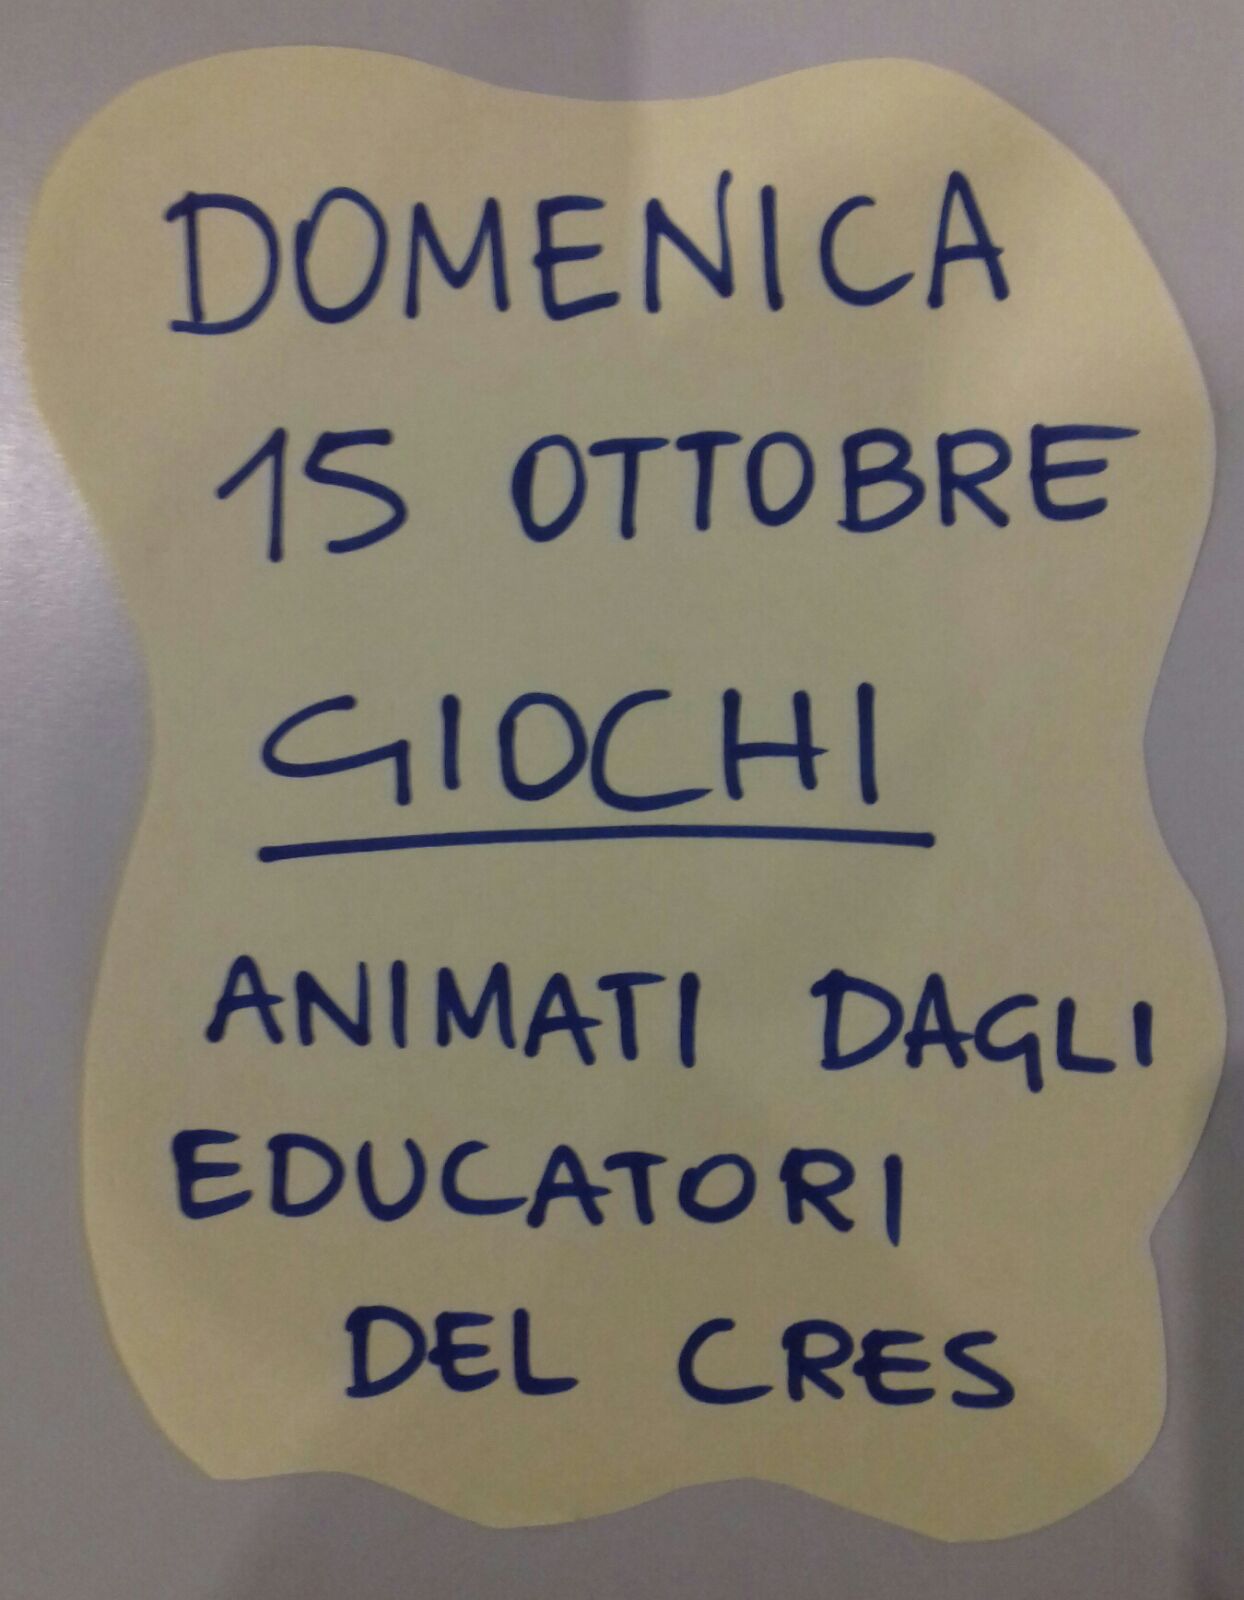 DOMENICA
15 OTTOBRE
GIOCHI
ANIMATI DAGLI
EDUCATORI
DEL CRES